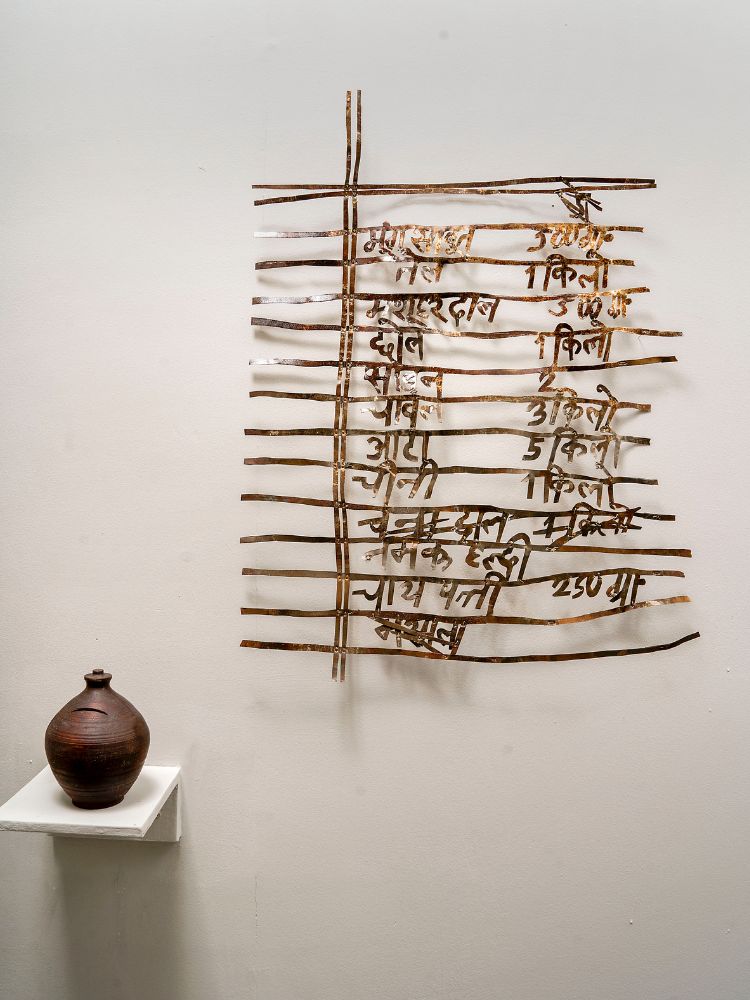 मूंग साबुत 300 ग्रा
तेल 1 किलो
मशहर दाल 300 ग्रा
छोले 1 किलो
साबुन 2
चावल 3 किलो
आटा 5 किलो
चीनी 1 किलो
चना दाल 1 किलो
नमक हल्दी
चाय पत्ती 250 ग्रा
मशाला